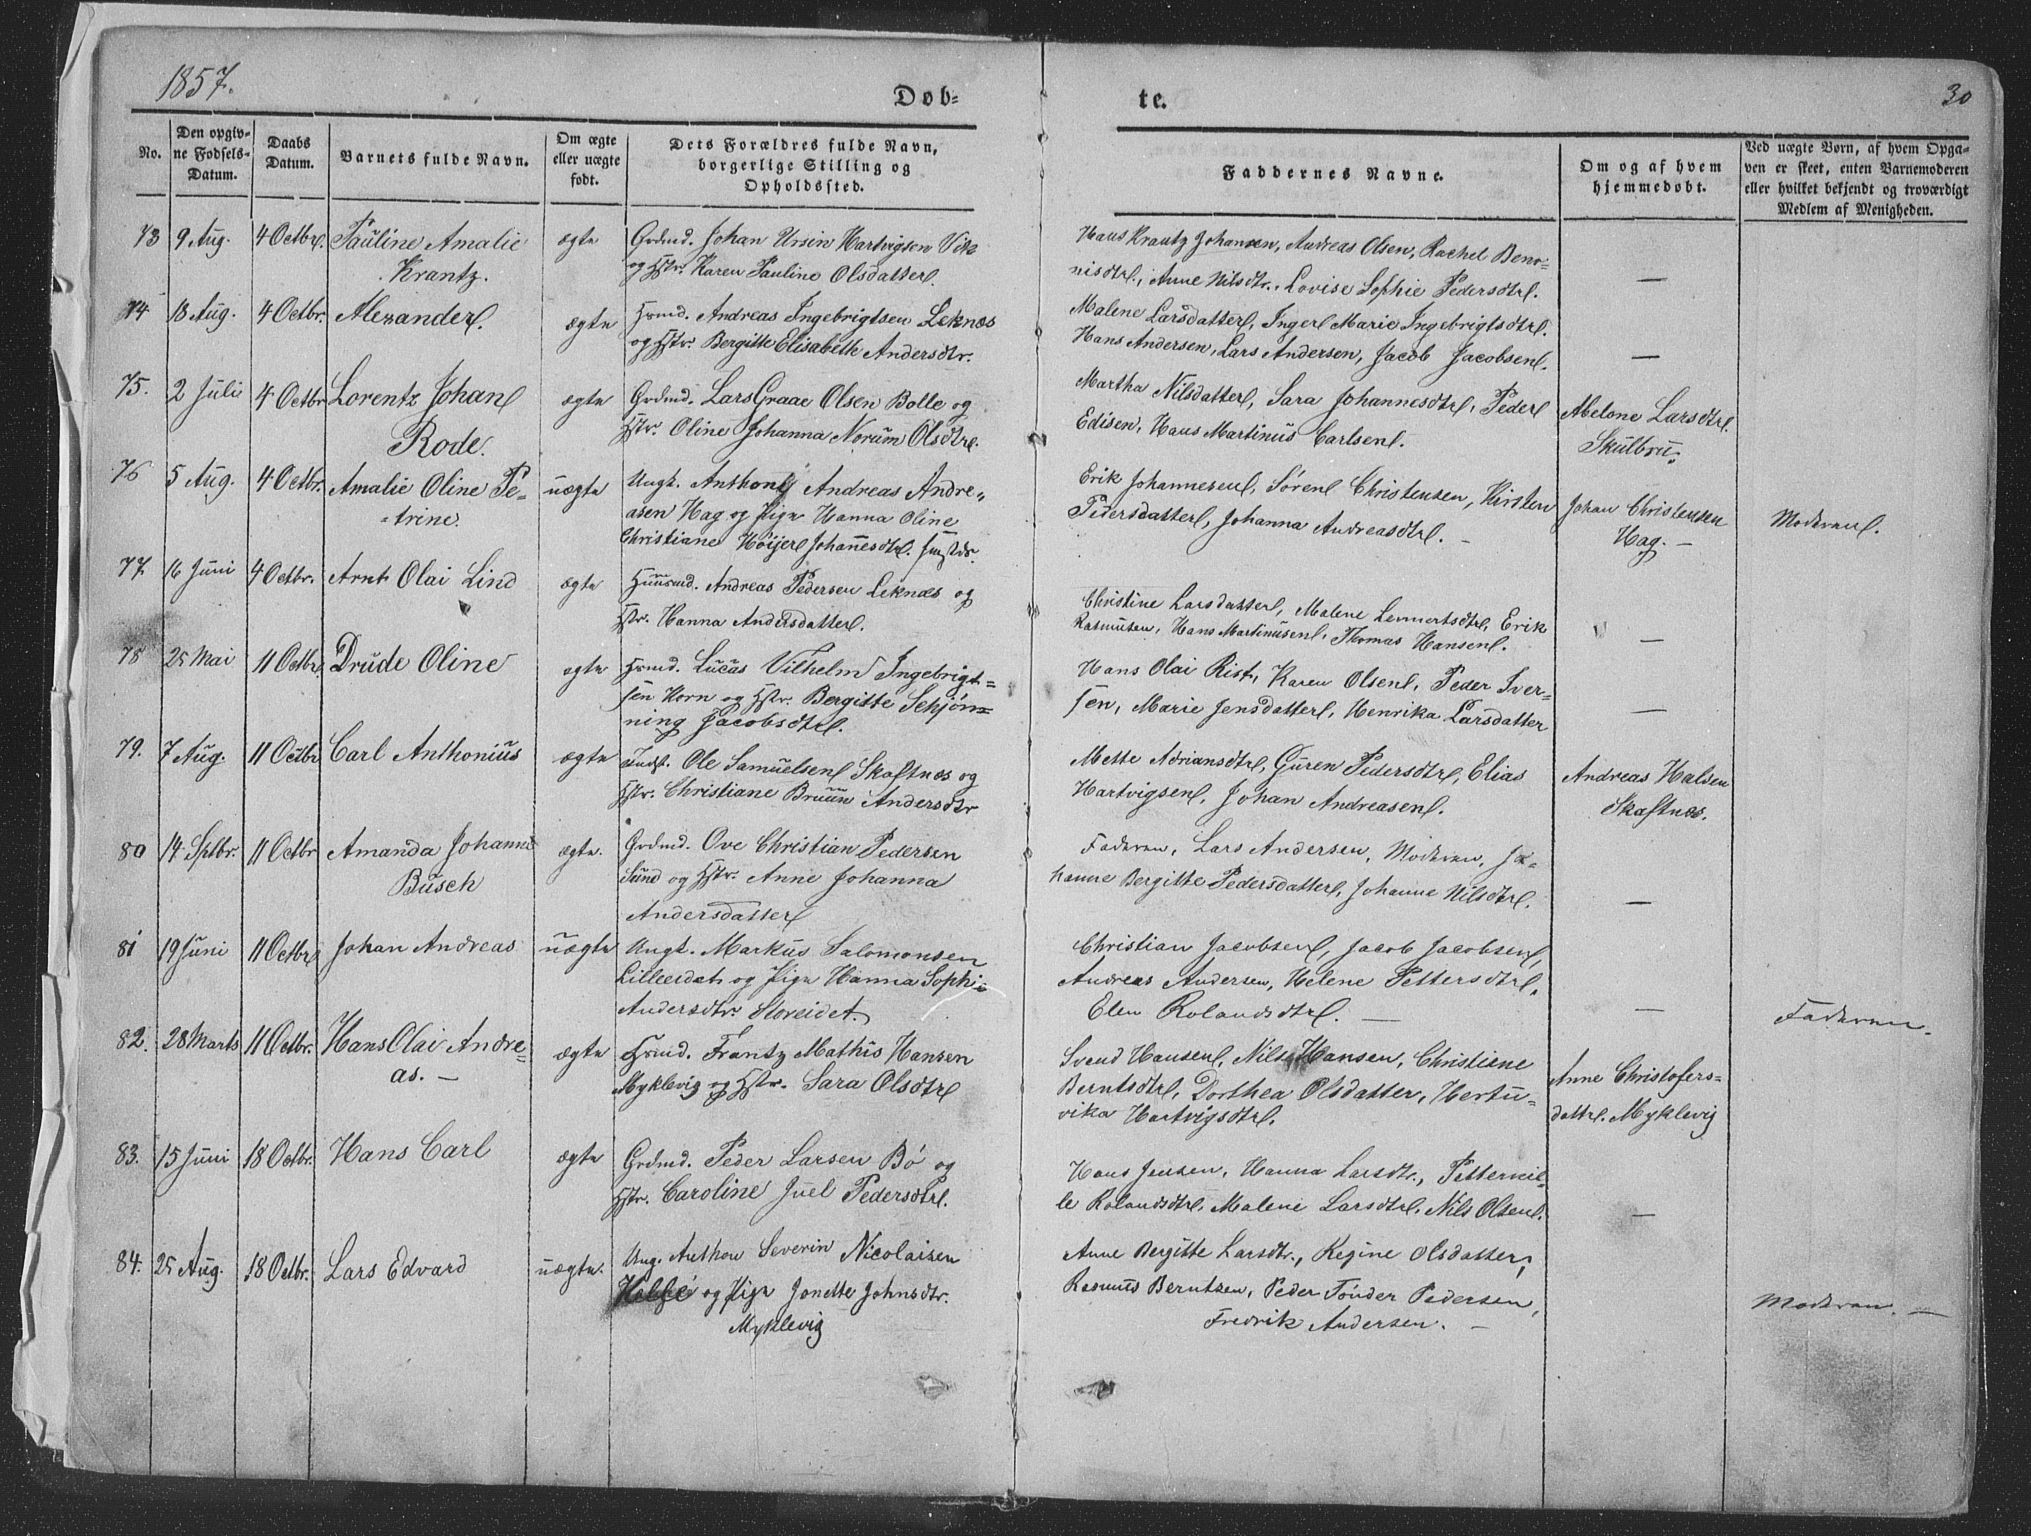 1857.
Døb-
te.
30
No.
Den opgiv-
ne Fødsels-
Datum.
Daabs
Datum.
Barnets fulde Navn.
Om ægte
eller uægte
født.
Dets Forældres fulde Navn,
borgerlige Stilling og
Opholdssted.
Faddernes Navne.
Om og af hvem
hjemmedøbt.
Ved uægte Børn, af hvem Opga-
ven er skeet, enten Barnemoderen
eller hvilket bekjendt og troværdigt
Medlem af Menigheden.
73 9 Aug. 4 Octbr. Pauline Amalie ægte Grdmd. Johan Ursin Hartvigsen Vik
Krantz. og Hstr. Karen Pauline Olsdatter.
Hans Krantz Johansen, Andreas Olsen, Rachel Beno-
nisdtr., Anne Nilsdtr., Lovise Sophie Pedersdtr. —
74 18 Aug. 4 Octbr. Alexander. ægte Hrmd. Andreas Ingebrigtsen Leknæs
og Hstr. Bergitte Elisabeth Andersdtr.
Malene Larsdatter, Inger Marie Ingebrigtsdtr.
Hans Andersen, Lars Andersen, Jacob Jacobsen. —
75. 2 Juli 4 Octbr Lorentz Johan ægte Grdmd. Lars Graae Olsen Bolle og
Rode. Hstr. Oline Johanna Norum Olsdtr.
Martha Nilsdatter, Sara Johannesdtr, Peder Abelone Larsdtr.
Edisen, Hans Martinus Carlsen. Skulbru.
76 5 Aug. 4 Octbr. Amalie Oline Pe- uægte Ungk. Anthon Andreas Andre-
-trine. asen Hag og Pige Hanna Oline
Christiane Höijer Johannesdtr.
Erik Johannesen, Søren Christensen, Kirsten Johan Christensen
Pedersdatter, Johanna Andreasdtr. — Hag. — Moderen.
77. 16 Juni 4 Octbr. Arnt Olai Lind ægte Huusmd. Andreas Pedersen Leknæs og
Hstr. Hanna Andersdatter.
Christine Larsdatter, Malene Lennertsdtr, Erik
Rasmusen, Hans Martinusen, Thomas Hansen. —
78 25 Mai 11 Octbr. Drude Oline ægte Hrmd. Lucas Vilhelm Ingebrigt-
sen Horn og Hstr. Bergitte Schjøn-
ning Jacobsdtr.
Hans Olai Rist, Karen Olsen, Peder Iver-
sen, Marie Jensdatter, Henrika Larsdatter —
79. 7 Aug. 11 Octbr Carl Anthonius ægte Indst. Ole Samuelsen Skaftnæs og
Hstr. Christiane Bruun Andersdtr
Mette Adriansdtr, Guren Pedersdtr, Elias Andreas Halsen
Hartvigsen, Johan Andreasen. Skaftnæs.
80 14 Sptbr. 11 Octbr Amanda Johanne ægte. Grdmd. Ove Christian Pedersen
Busch Sund og Hstr. Anne Johanna
Andersdatter
Faderen, Lars Andersen, Moderen, Jo-
hanne Bergitte Pedersdatter, Johanne Nilsdtr. —
81 19 Juni 11 Octbr Johan Andreas uægte Ungk. Markus Salomonsen
Lilleeidet og Pige Hanna Sophie
Andersdtr. Storeidet.
Christian Jacobsen, Jacob Jacobsen,
Andreas Andersen, Helene Pettersdtr.
Elen Rolandsdtr. — — Faderen.
82. 28 Marts 11 Octbr. Hans Olai Andre- ægte Hrmd. Frantz Mathis Hansen
as. — Myklevig og Hstr. Sara Olsdtr
Svend Hansen, Nils Hansen, Christiene Anne Christofers-
Berntsdtr, Dorthea Olsdatter, Hertu- dattr. Myklevig
vika Hartvigsdtr.
83. 15 Juni 18 Octbr. Hans Carl ægte Grdmd. Peder Larsen Bø og
Hstr. Caroline Juel Pedersdtr.
Hans Jensen, Hanna Larsdtr., Petternil-
le Rolandsdtr, Malene Larsdtr, Nils Olsen. —
84. 25 Aug. 18 Octbr. Lars Edvard uægte. Ung. Anthon Severin Nicolaisen
og Pige Jonette Johnsdtr.
Myklevig
Anne Bergitte Larsdtr., Regine Olsdatter,
Rasmus Berntsen, Peder Tønder Pedersen,
Fredrik Andersen. — Moderen. —